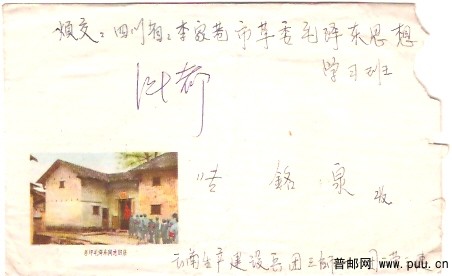 烦交：四川省：李家巷市革委毛泽东思想
学习班
成都
铭泉 收
云南生产建设兵团三师
普邮网
www.puu.cn